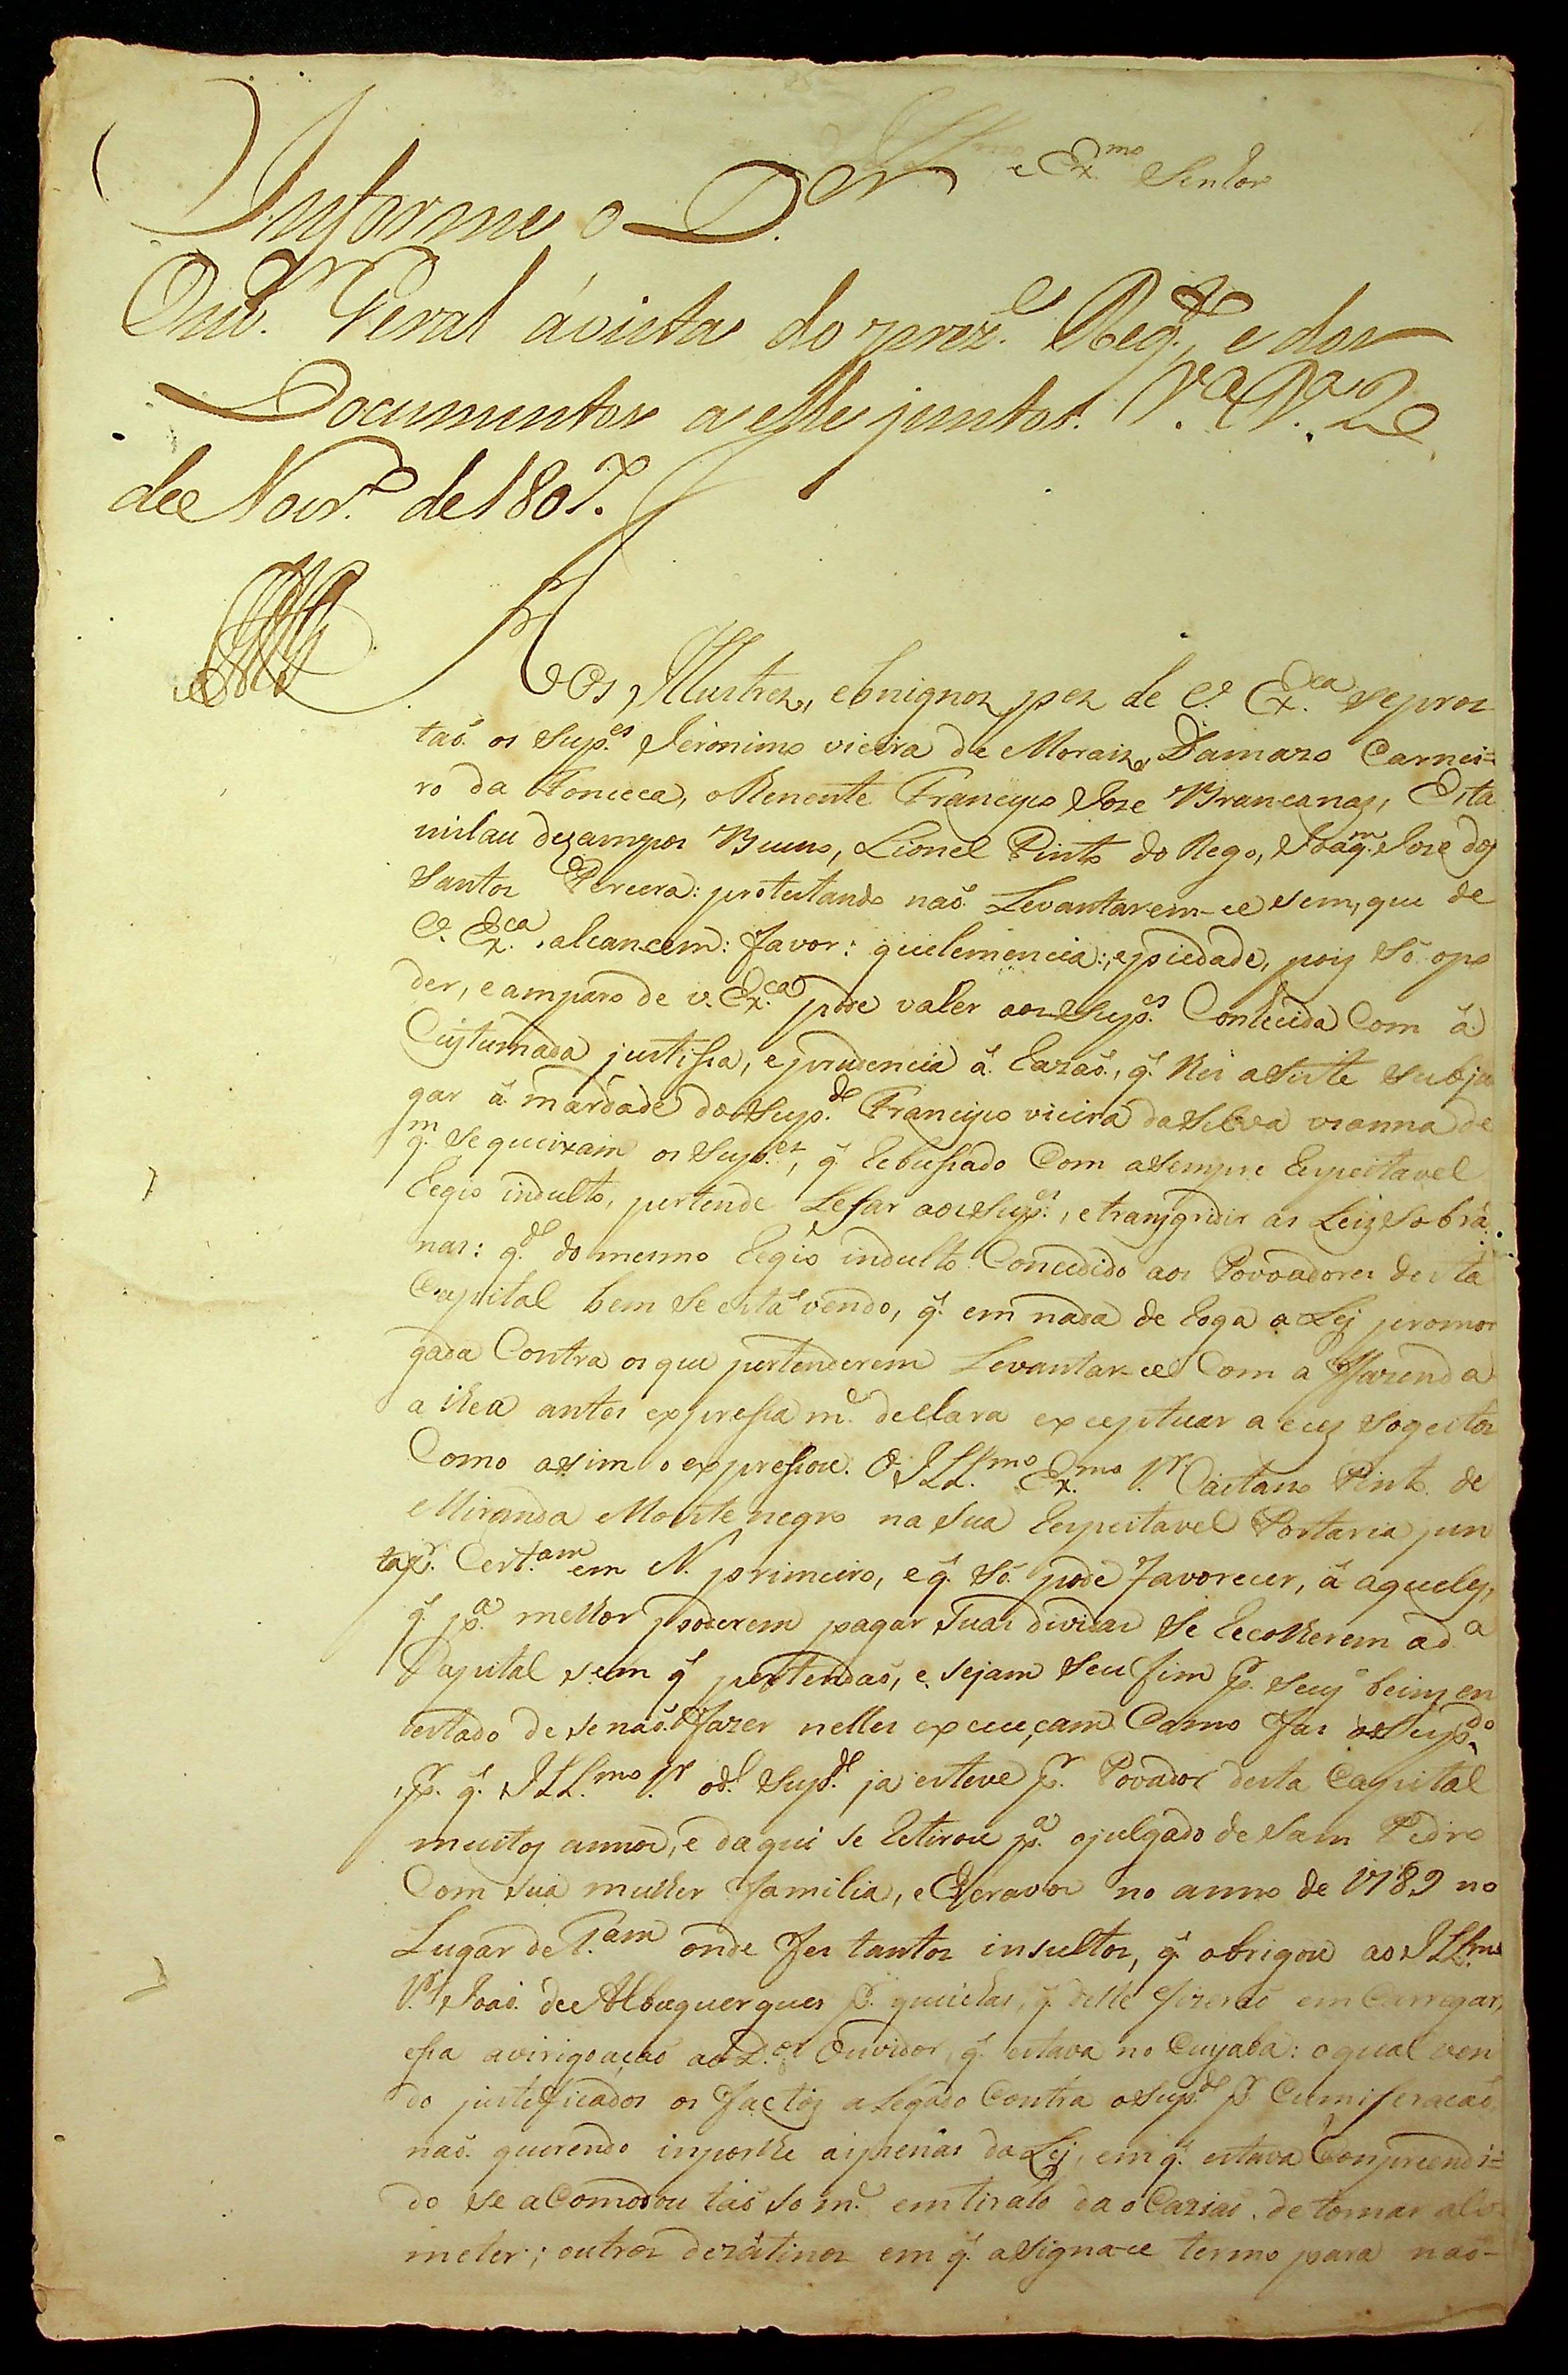 Ill.mo e Ex.mo Senhor
Informe o D.or
Ouv.or Geral ávista do prez.e Req.to, e dos
Documentos a elle juntos. V.a B.a 2
de Novr.o de 1807.
Aos Illustres, ebnignos pes de V. Ex.ca se pros
taõ os Sup.es Jeronimo vieira de Morais, Damazo Carnei=
ro da Fonceca, o Thenente Francisco Joze Brancanas, Esta
nislau dezampos Bueno, Lionel Pinto do Rego, Joaq.m Joze dos
Santos Perera: protestando naõ Levantarem-ce sem, que de
V. Ex.ca alcancem: favor: quelemencia:, epiedade, pois Só opo
der, e amparo de v. Ex.ca pode valer aos Sup.es Conhecida Com á
Custumada justissa, e prudencia á Razaõ, q.
gar á mardade do Sup.do Francisco vieira da Silva vianna de
q.m Se queixam os Sup.es, q. Rebussado Com a Sempre Respeitavel
Regio indulto, pertende Lesar aos Sup.es, e transgridir as Leis Sobrá
nas: q.do do mesmo Regio indulto Concedido aos Povoadores desta
Capital bem Se está vendo, q. em nada de Roga a Lej promor
gada Contra os que pertenderem Levantar-ce Com a Fazenda
a lhea antes expressa m.e declara exceptuar a eces Sogeitos
Como asim o expressou. O Ill.mo Ex.mo S.r Caitano Pinto de
Miranda Montenegro na Sua Respeitavel Portaria jun
ta p.r Cert.am em N. primeiro, e q. Só pode favorecer, á aqueles,
q. p.a melhor poderem pagar Suas dividas Se Recolherem a d.a
Capital sem q. pertendaõ, e sejam Seu fim p.r Seus beins en
testado de se naõ fazer nelles execuçam Como fas o Sup.do
p.r q. Ill.mo S.r o d.o Sup.do ja esteve p.r Povador desta Capital
muitos annos, e daqui se Retirou p.a ojulgado de Sam Pedro
Com sua mulher familia, e Escravos no anno de 1789 no
Lugar de onde fes tantos insultos, q. obrigou ao Ill.mo
S.r Joaõ de Albuquerques p.r queichas, q. delle fizeraõ em Carregar,
essa avirigoaçaõ ao D.or Ouvidor, q. estava no Cuyabá: oqual ven
do justeficados os factos a Legado Contra o Sup.do p.r Cumiseracaõ,
naõ querendo inporlhe aspenas da Lej, em q. estava Conpreendi=
do se aComodou taõ So m.e em tiralo da oCaziaõ de tornar a Co
meter; outros dezátinos em q. aSigna-ce termo para naõ-